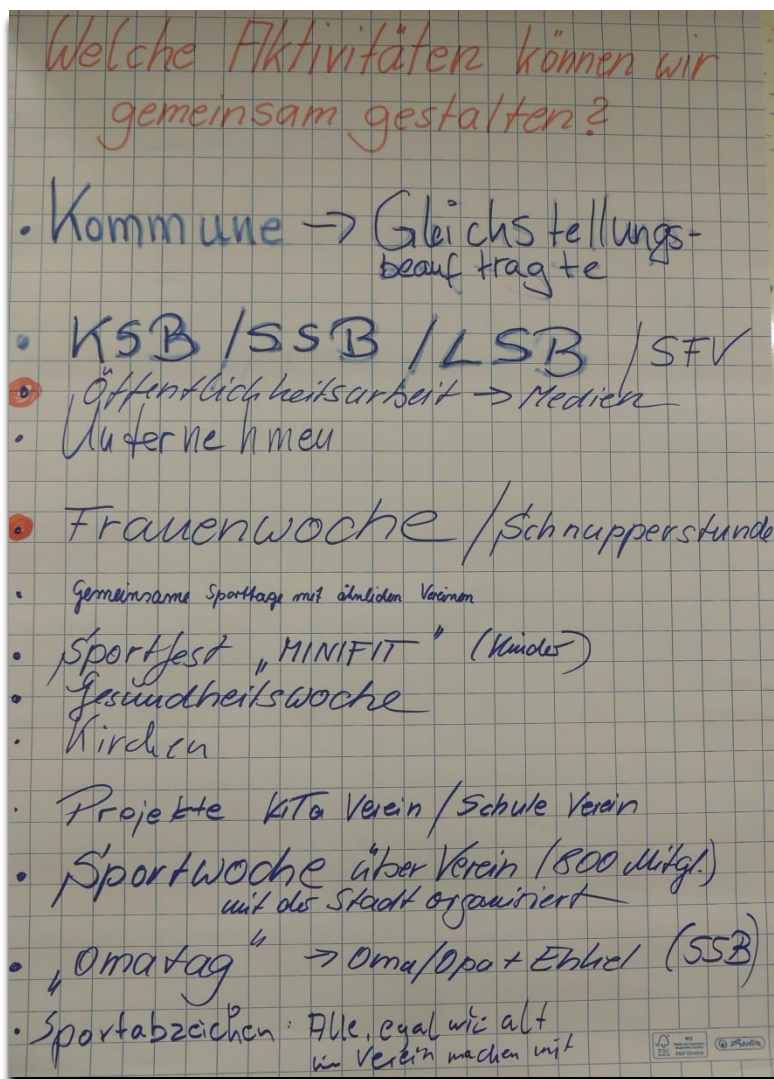 Welche Aktivitäten können wir
gemeinsam gestalten?
• Kommune → Gleichstellungs-
beauftragte
• KSB / SSB / LSB / SFV
• Öffentlichkeitsarbeit → Medien
• Unternehmen
• Frauenwoche / Schnupperstunde
• Gemeinsame Sporttage mit ähnlichen Vereinen
• Sportfest „MINIFIT" (Kinder)
• Gesundheitswoche
• Kirchen
• Projekte KiTa Verein / Schule Verein
• Sportwoche über Verein (800 Mitgl.)
mit der Stadt organisiert
• „Omatag" → Oma/Opa + Enkel (SSB)
• Sportabzeichen: Alle, egal wie alt
im Verein machen mit
FSC